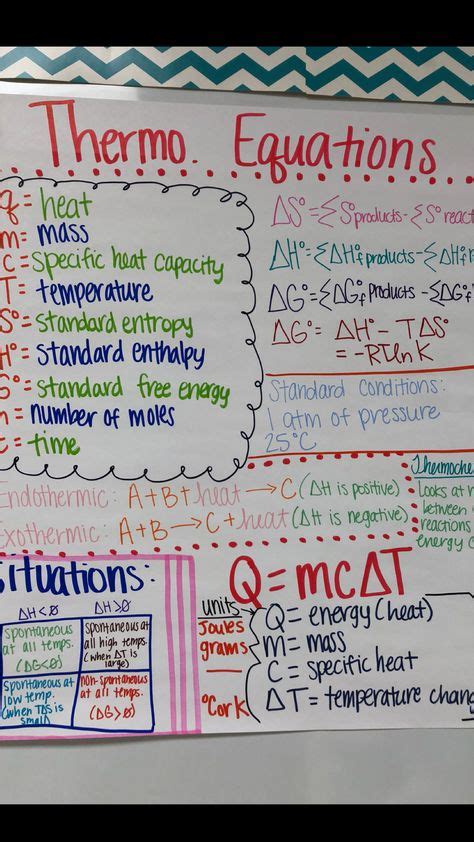 Thermo. Equations
q = heat
m = mass
C = specific heat capacity
T = temperature
S° = standard entropy
H° = standard enthalpy
G° = standard free energy
n = number of moles
t = time
ΔS° = ΣS°products - ΣS° reac
ΔH° = ΣΔH°f products - ΣΔH°f
ΔG° = ΣΔG°f products - ΣΔG°f
ΔG° = ΔH° - TΔS°
= -RTlnK
Standard Conditions:
1 atm of pressure
25°C
Endothermic: A + B + heat → C (ΔH is positive)
Exothermic: A + B → C + heat (ΔH is negative)
Thermoche
Looks at
between
reactions
energy
Situations:
ΔH<0 ΔH>0
spontaneous at all temps. (ΔG<0)
spontaneous at all high temps. (when ΔT is large)
spontaneous at low temp. (when TΔS is small)
non-spontaneous at all temps. (ΔG>0)
Q = mcΔT
units
Joules
grams
°C or K
Q = energy (heat)
M = mass
C = specific heat
ΔT = temperature chan